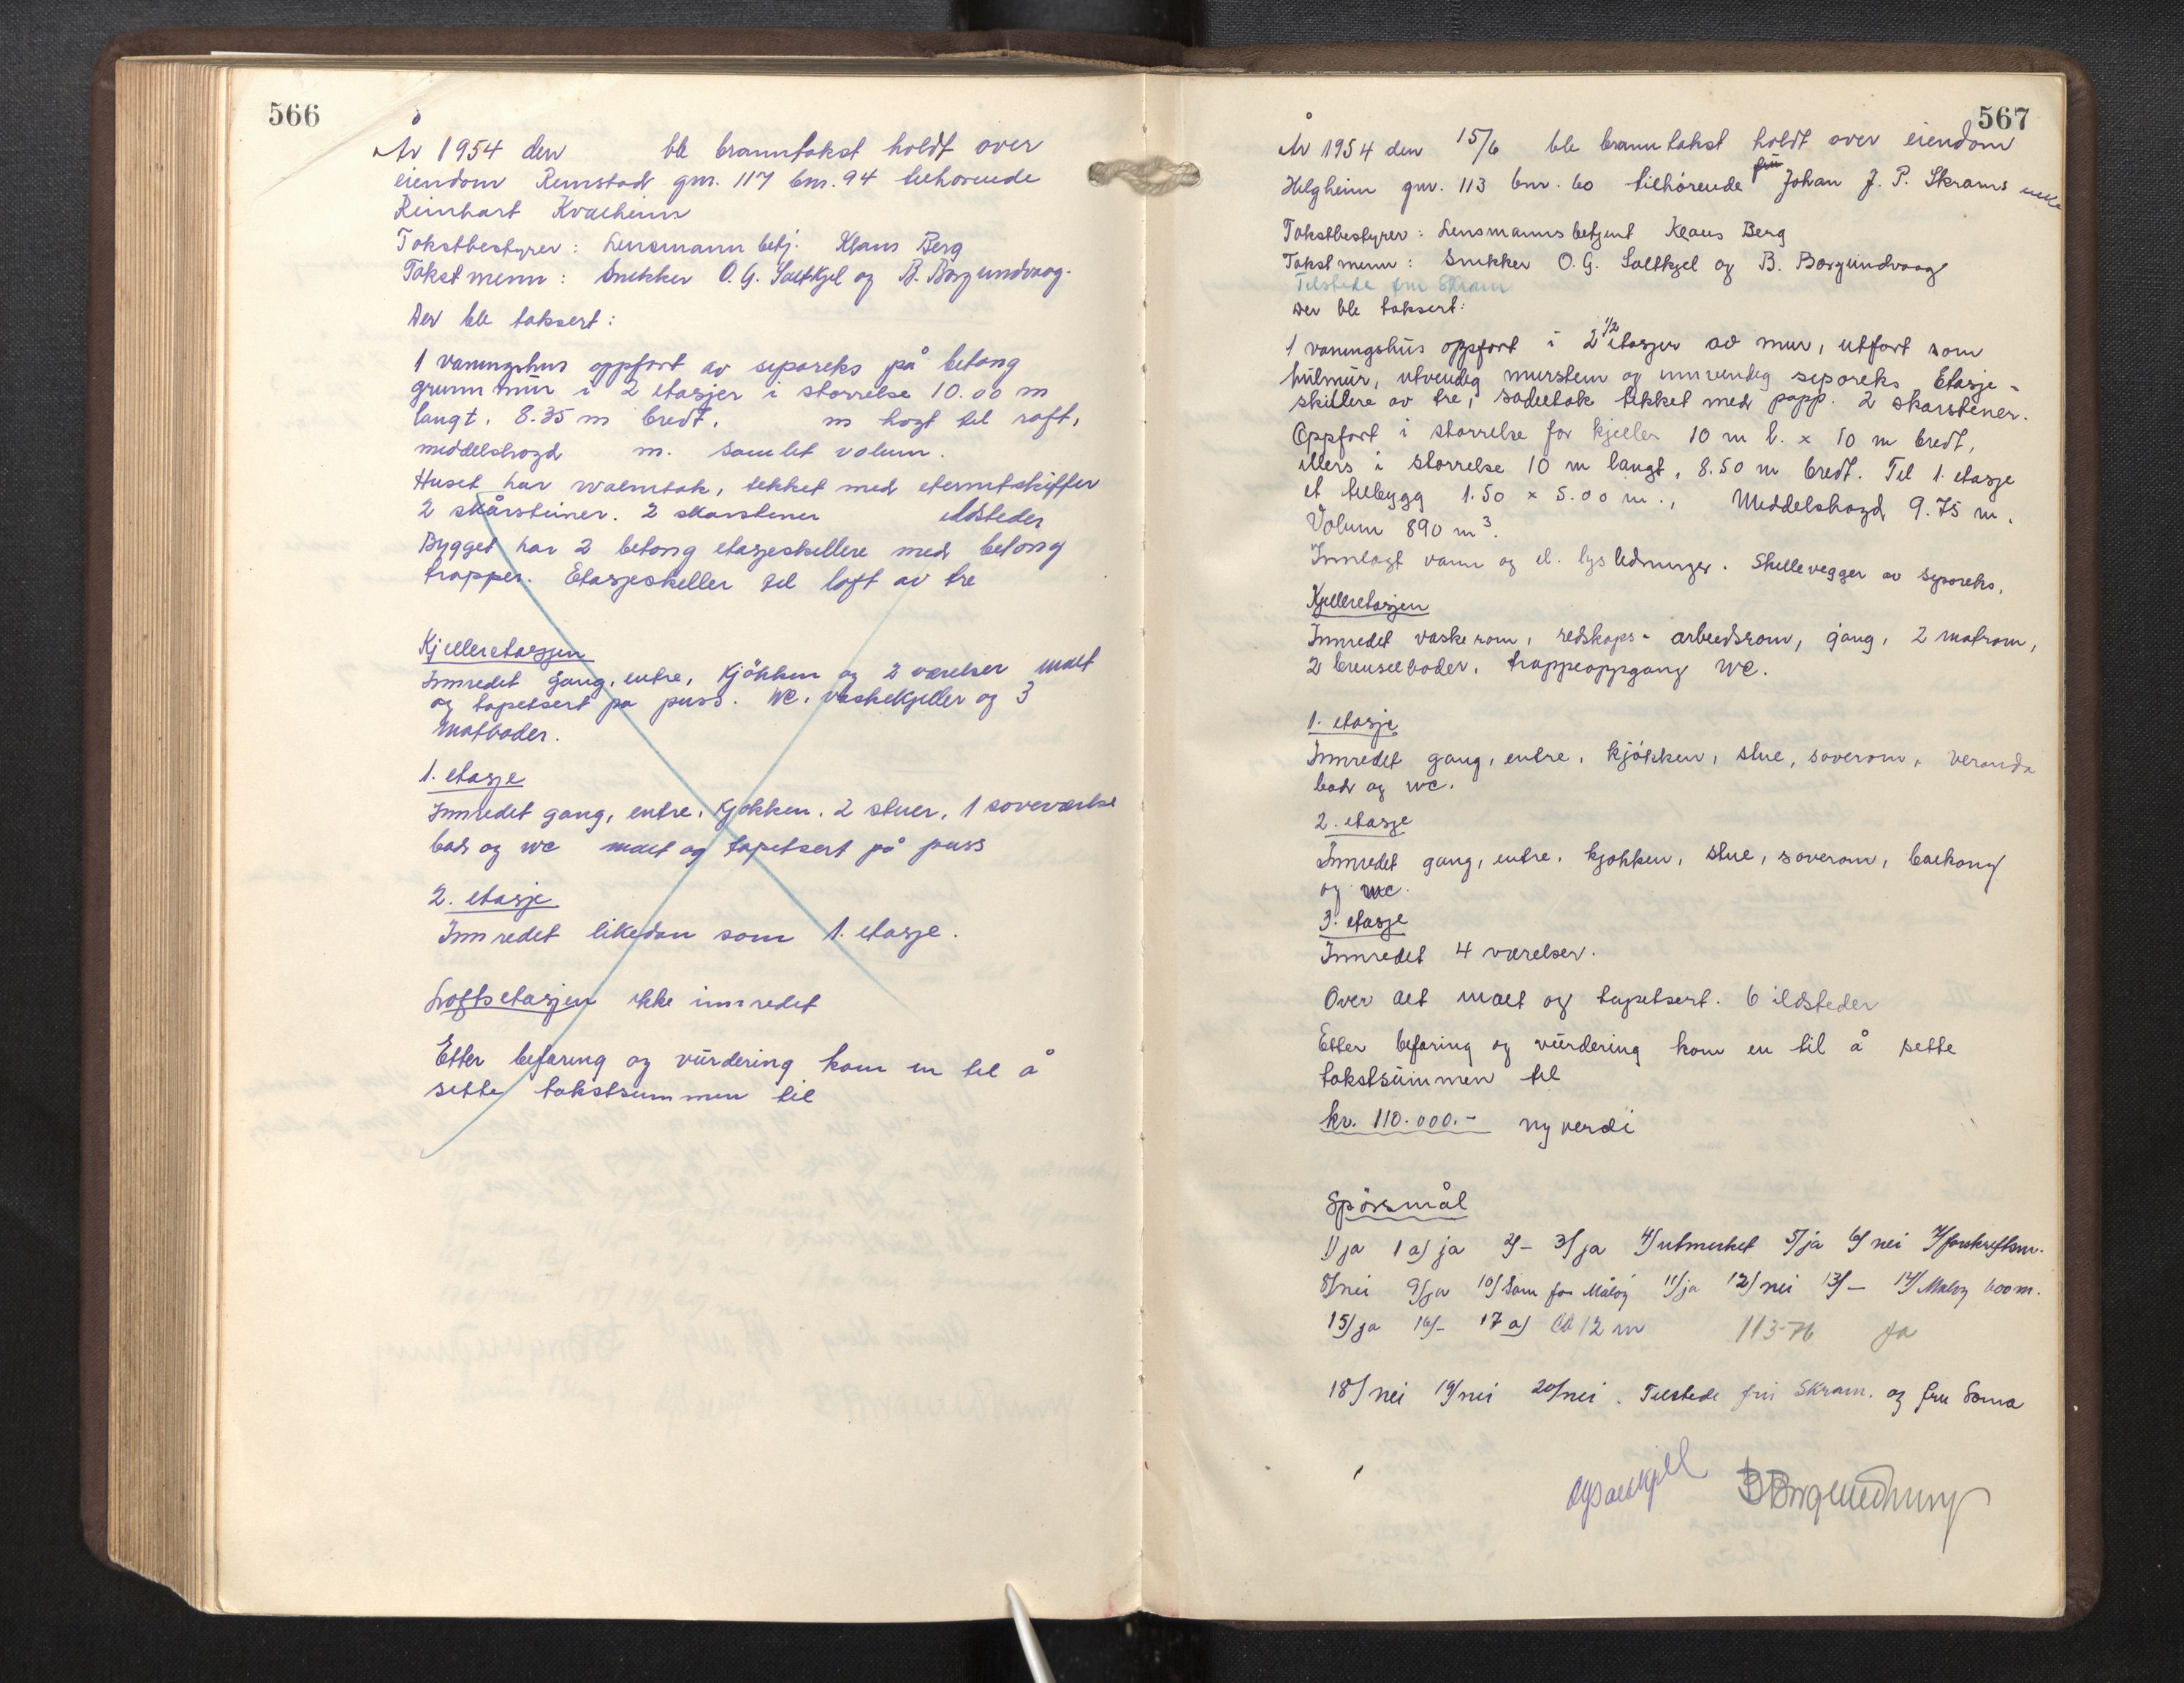 566
År 1954 den ble branntakst holdt over
eiendom Rimstad gnr. 117 bnr. 94 tilhørende
Reinhart Kvalheim
Takstbestyrer: Lensmann betj. Klaus Berg
Takst menn: Snekker O. G. Saltkjel og B. Borgundvaag.
Der ble taksert:
1 våningshus oppført av siporeks på betong
grunn mur i 2 etasjer i størrelse 10.00 m
langt, 8.35 m bredt, m høgt til raft,
middelshøgd m. Samlet volum.
Huset har valmtak, tekket med eternitskiffer
2 skårsteiner. 2 skarstener ildsteder
Bygget har 2 betong etasjeskillere med betong
trapper. Etasjeskiller til loft av tre
Kjelleretasjen
Innredet gang, entre, kjökken og 2 værelser malt
og tapetsert på puss. WC, vaskekjeller og 3
matboder.
1. etasje
Innredet gang, entre, kjøkken, 2 stuer, 1 soveværelse
bad og WC malt og tapetsert på puss
2. etasje
Innredet likedan som 1. etasje.
Loftsetasjen ikke innredet
Etter befaring og vurdering kom en til å
sette takstsummen til
567
År 1954 den 15/6 ble branntakst holdt over eiendom
Helgheim gnr. 113 bnr. 60 tilhörende fru Johan J. P. Skrams enke
Takstbestyrer: Lensmanns betjent Klaus Berg
Takst menn: Snekker O. G. Saltkjel og B. Borgundvaag
Tilstede fru Skram
Der ble taksert:
1 våningshus oppført i 2 1/2 etasjer av mur, utført som
hulmur, utvendig murstein og innvendig siporeks. Etasje-
skillere av tre, sadeltak tekket med papp. 2 skarstener.
Oppført i størrelse for kjeller 10 m l. x 10 m bredt,
ellers i størrelse 10 m langt, 8.50 m bredt. Til 1. etasje
et tilbygg 1.50 x 5.00 m., Middelshøgd 9.75 m.
Volum 890 m³.
Innlagt vann og el. lys ledninger. Skillevegger av siporeks.
Kjelleretasjen
Innredet vaskerom, redskaps- arbeidsrom, gang, 2 matrom,
2 brenselboder, trappeoppgang WC.
1. etasje
Innredet gang, entre, kjökken, stue, soverom, veranda
bad og WC.
2. etasje
Innredet gang, entre, kjøkken, stue, soverom, balkong
og WC.
3. etasje
Innredet 4 værelser.
Over alt malt og tapetsert. 6 ildsteder
Etter befaring og vurdering kom en til å sette
takstsummen til
kr. 110.000.- ny verdi
Spörsmål
1) ja 1 a) ja 2) - 3) ja 4) utmerket 5) ja 6) nei 7) forskriftsm.
8) nei 9) ja 10) Som for Måløy 11) ja 12) nei 13) - 14) Måløy 600 m.
15) ja 16) - 17 a) 12 m 113-76 ja
18) nei 19) nei 20) nei. Tilstede fru Skram. og fru
OGSaltkjel BBorgundvaag